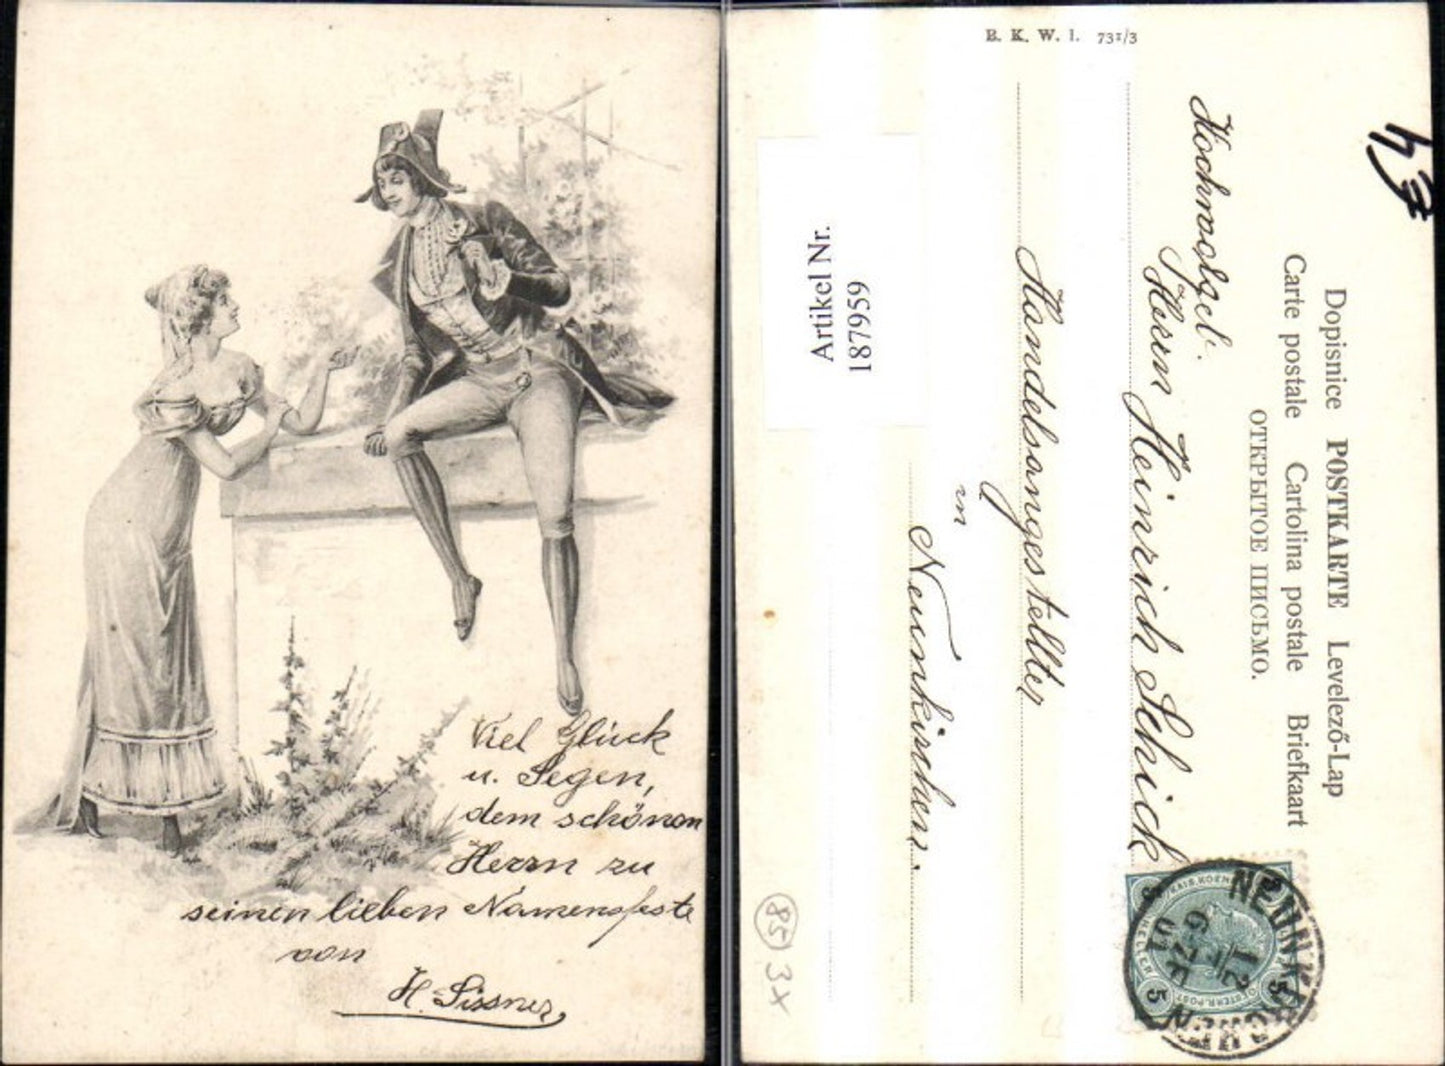 Viel Glück
u. Segen,
dem schönen
Herrn zu
seinen lieben Namensfeste
von
H. Sissner
B. K. W. I. 731/3
Artikel Nr.
187959
Dopisnice POSTKARTE Levelező-Lap
Carte postale Cartolina postale Briefkaart
ОТКРЫТОЕ ПИСЬМО.
Hochwolgeb.
Herrn Heinrich Schick
Handelsangestellter
in
Neunkirchen.
NEUNKIRCHEN
12
01
5 5
85 3x